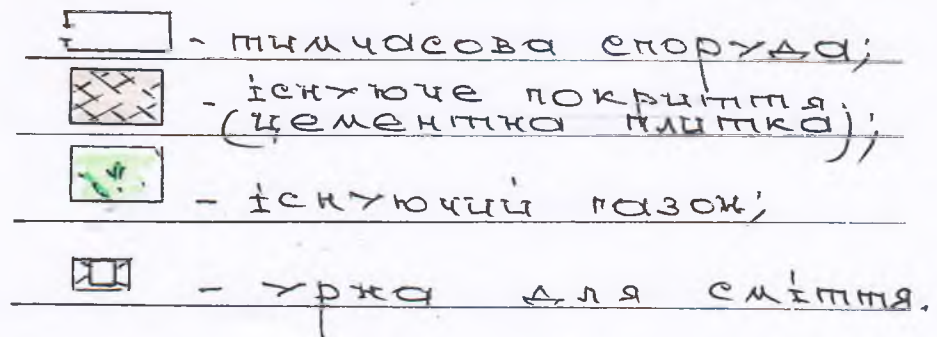 - тимчасова споруда;
- існуюче покриття
(цементна плитка);
- існуючий газон;
- урна для сміття.